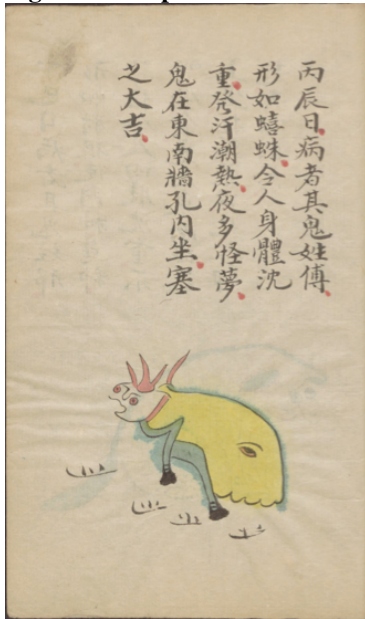 丙辰日病者其鬼姓傅
形如蟢蛛令人身體沈
重發汗潮熱夜多怪夢
鬼在東南牆孔内坐塞
之大吉